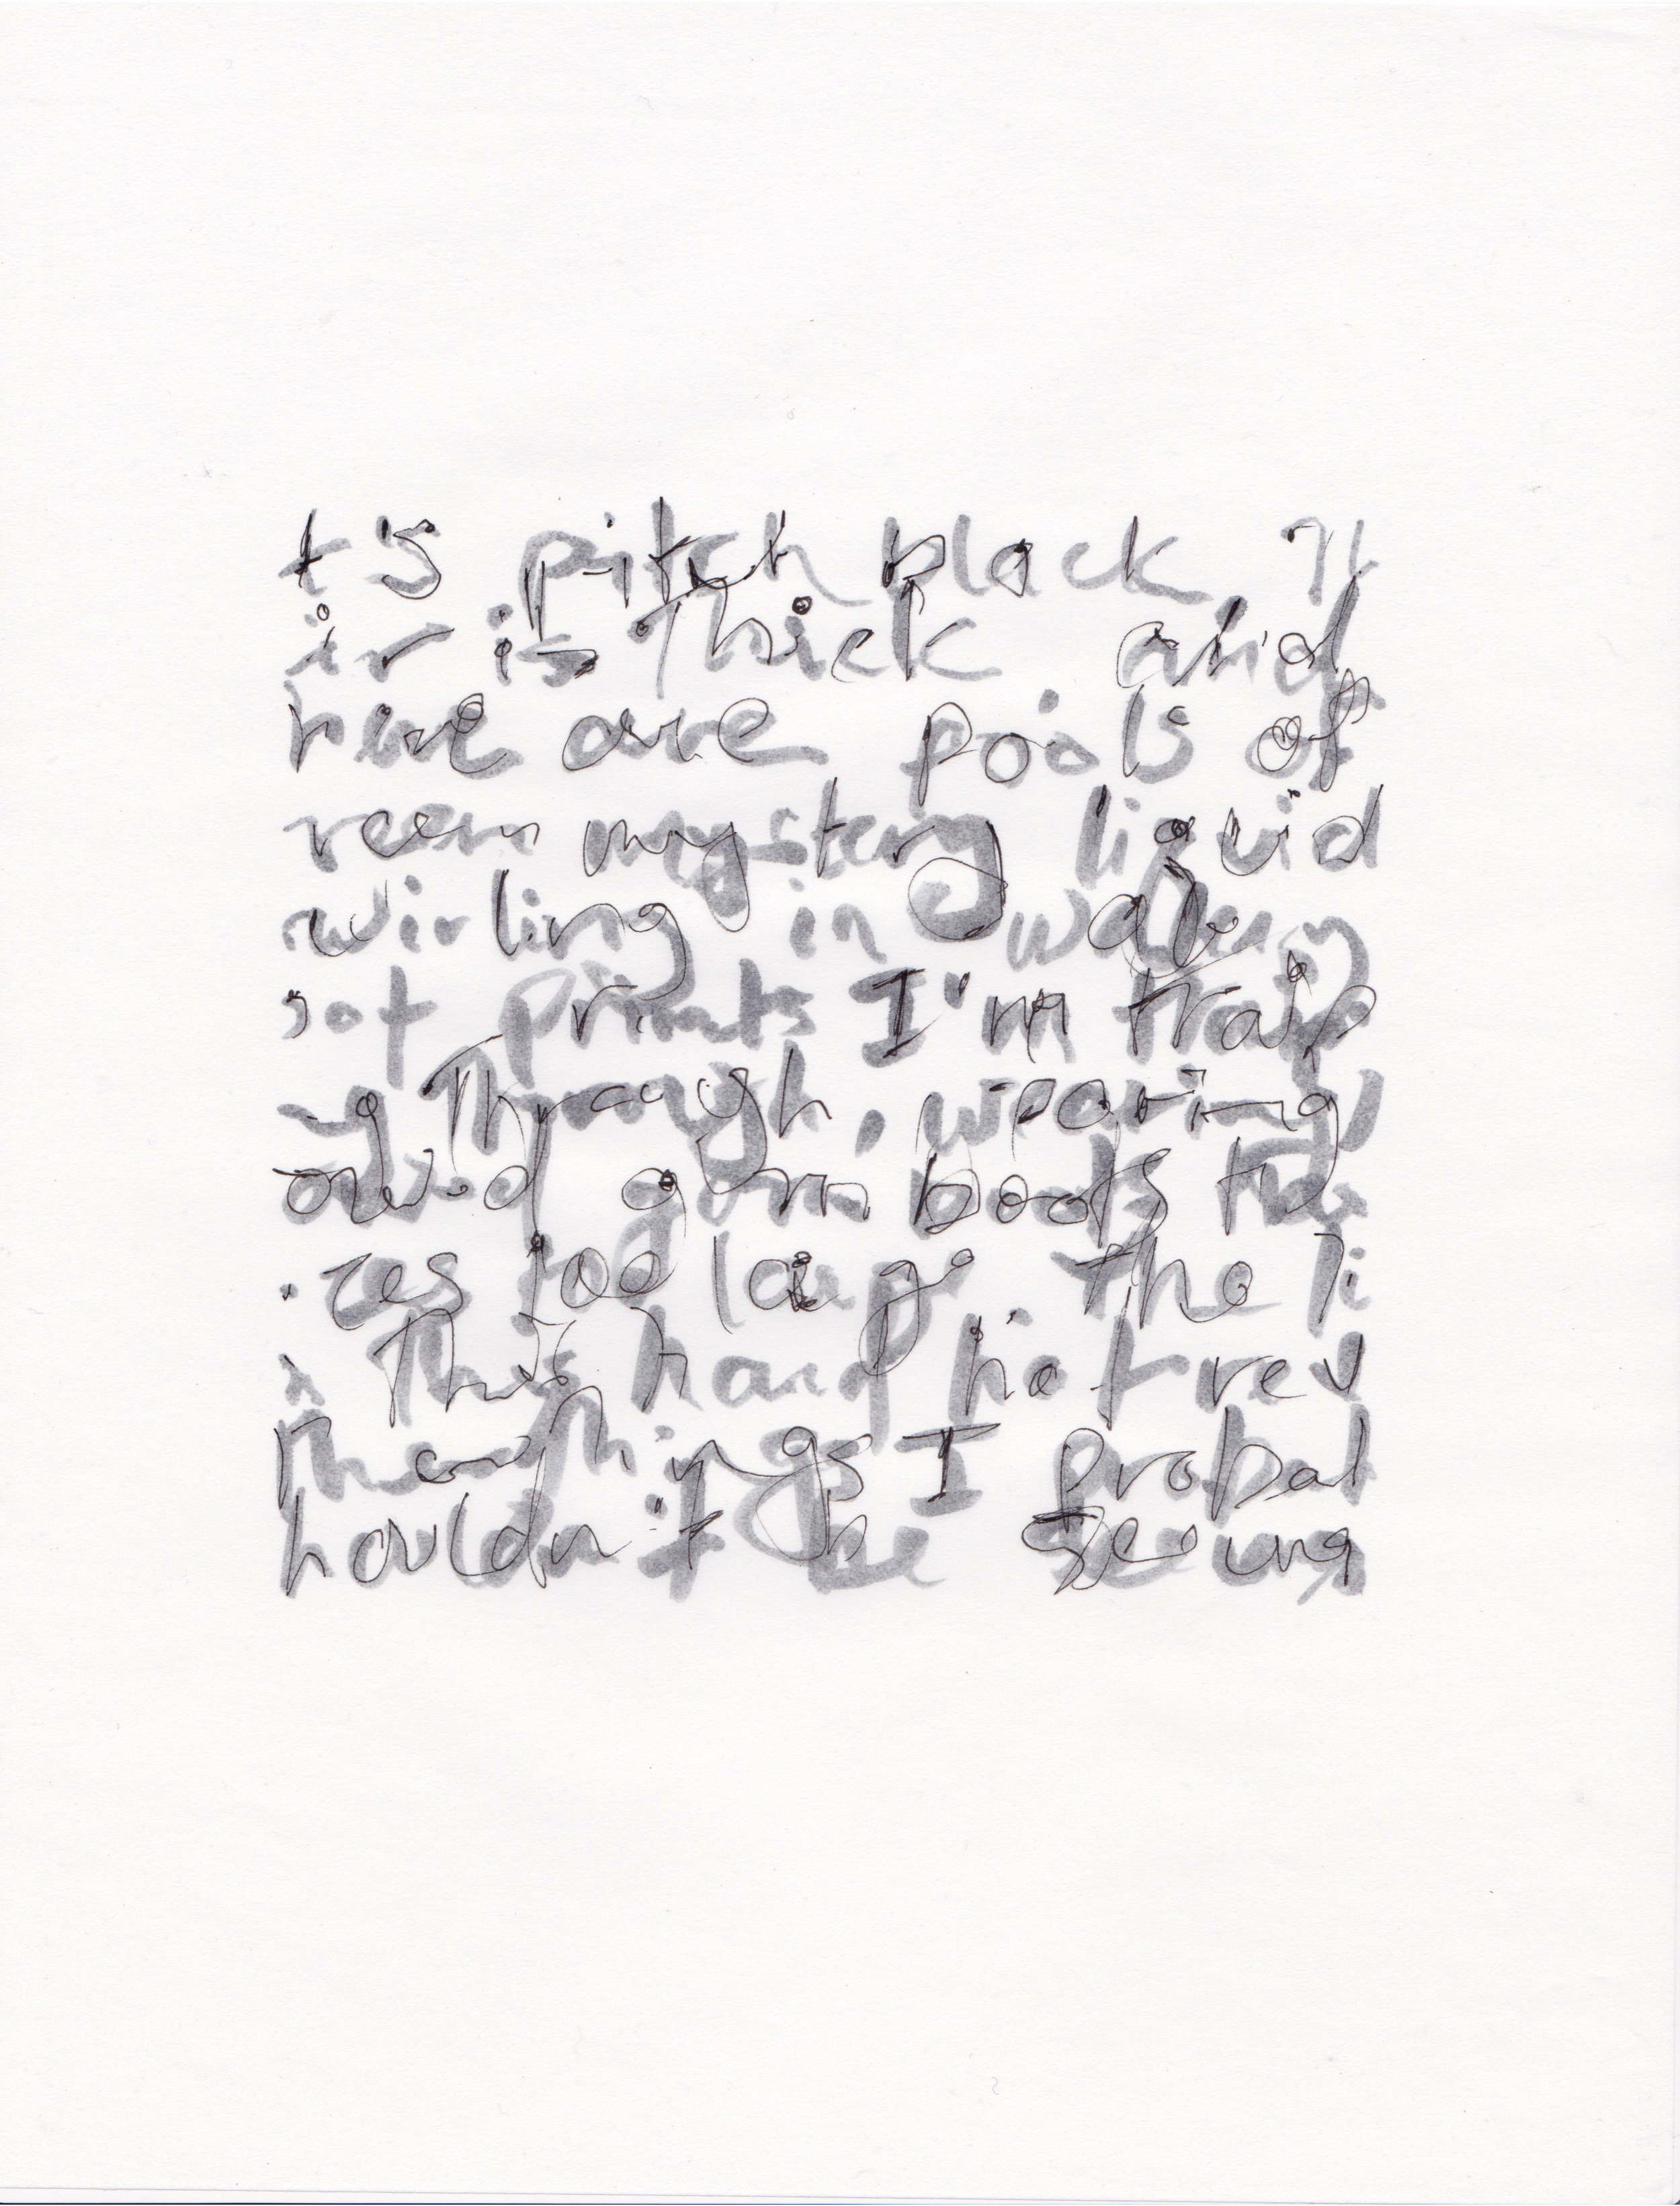 t's pitch black, Th
ir is thick and
here are pools of
reen mystery liquid
wirling in
oot prints I'm traip
ng through, wearing
owed gum boots two
izes too large. The li
n this hand not rev
the things I probab
houldn't be seeing